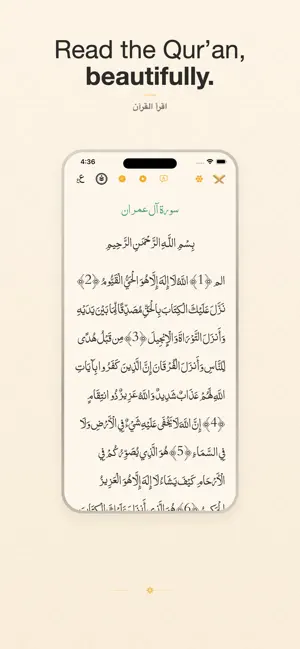 Read the Qur’an,
beautifully.
اقرأ القرآن
4:36
ع
سورة آل عمران
بِسْمِ اللَّهِ الرَّحْمَٰنِ الرَّحِيمِ
الم ﴿1﴾ اللَّهُ لَا إِلَٰهَ إِلَّا هُوَ الْحَيُّ الْقَيُّومُ ﴿2﴾
نَزَّلَ عَلَيْكَ الْكِتَابَ بِالْحَقِّ مُصَدِّقًا لِّمَا بَيْنَ يَدَيْهِ
وَأَنزَلَ التَّوْرَاةَ وَالْإِنجِيلَ ﴿3﴾ مِن قَبْلُ هُدًى
لِّلنَّاسِ وَأَنزَلَ الْفُرْقَانَ إِنَّ الَّذِينَ كَفَرُوا بِآيَاتِ
اللَّهِ لَهُمْ عَذَابٌ شَدِيدٌ وَاللَّهُ عَزِيزٌ ذُو انتِقَامٍ
﴿4﴾ إِنَّ اللَّهَ لَا يَخْفَىٰ عَلَيْهِ شَيْءٌ فِي الْأَرْضِ وَلَا
فِي السَّمَاءِ ﴿5﴾ هُوَ الَّذِي يُصَوِّرُكُمْ فِي
الْأَرْحَامِ كَيْفَ يَشَاءُ لَا إِلَٰهَ إِلَّا هُوَ الْعَزِيزُ
الْحَكِيمُ ﴿6﴾ هُوَ الَّذِي أَنزَلَ عَلَيْكَ الْكِتَابَ